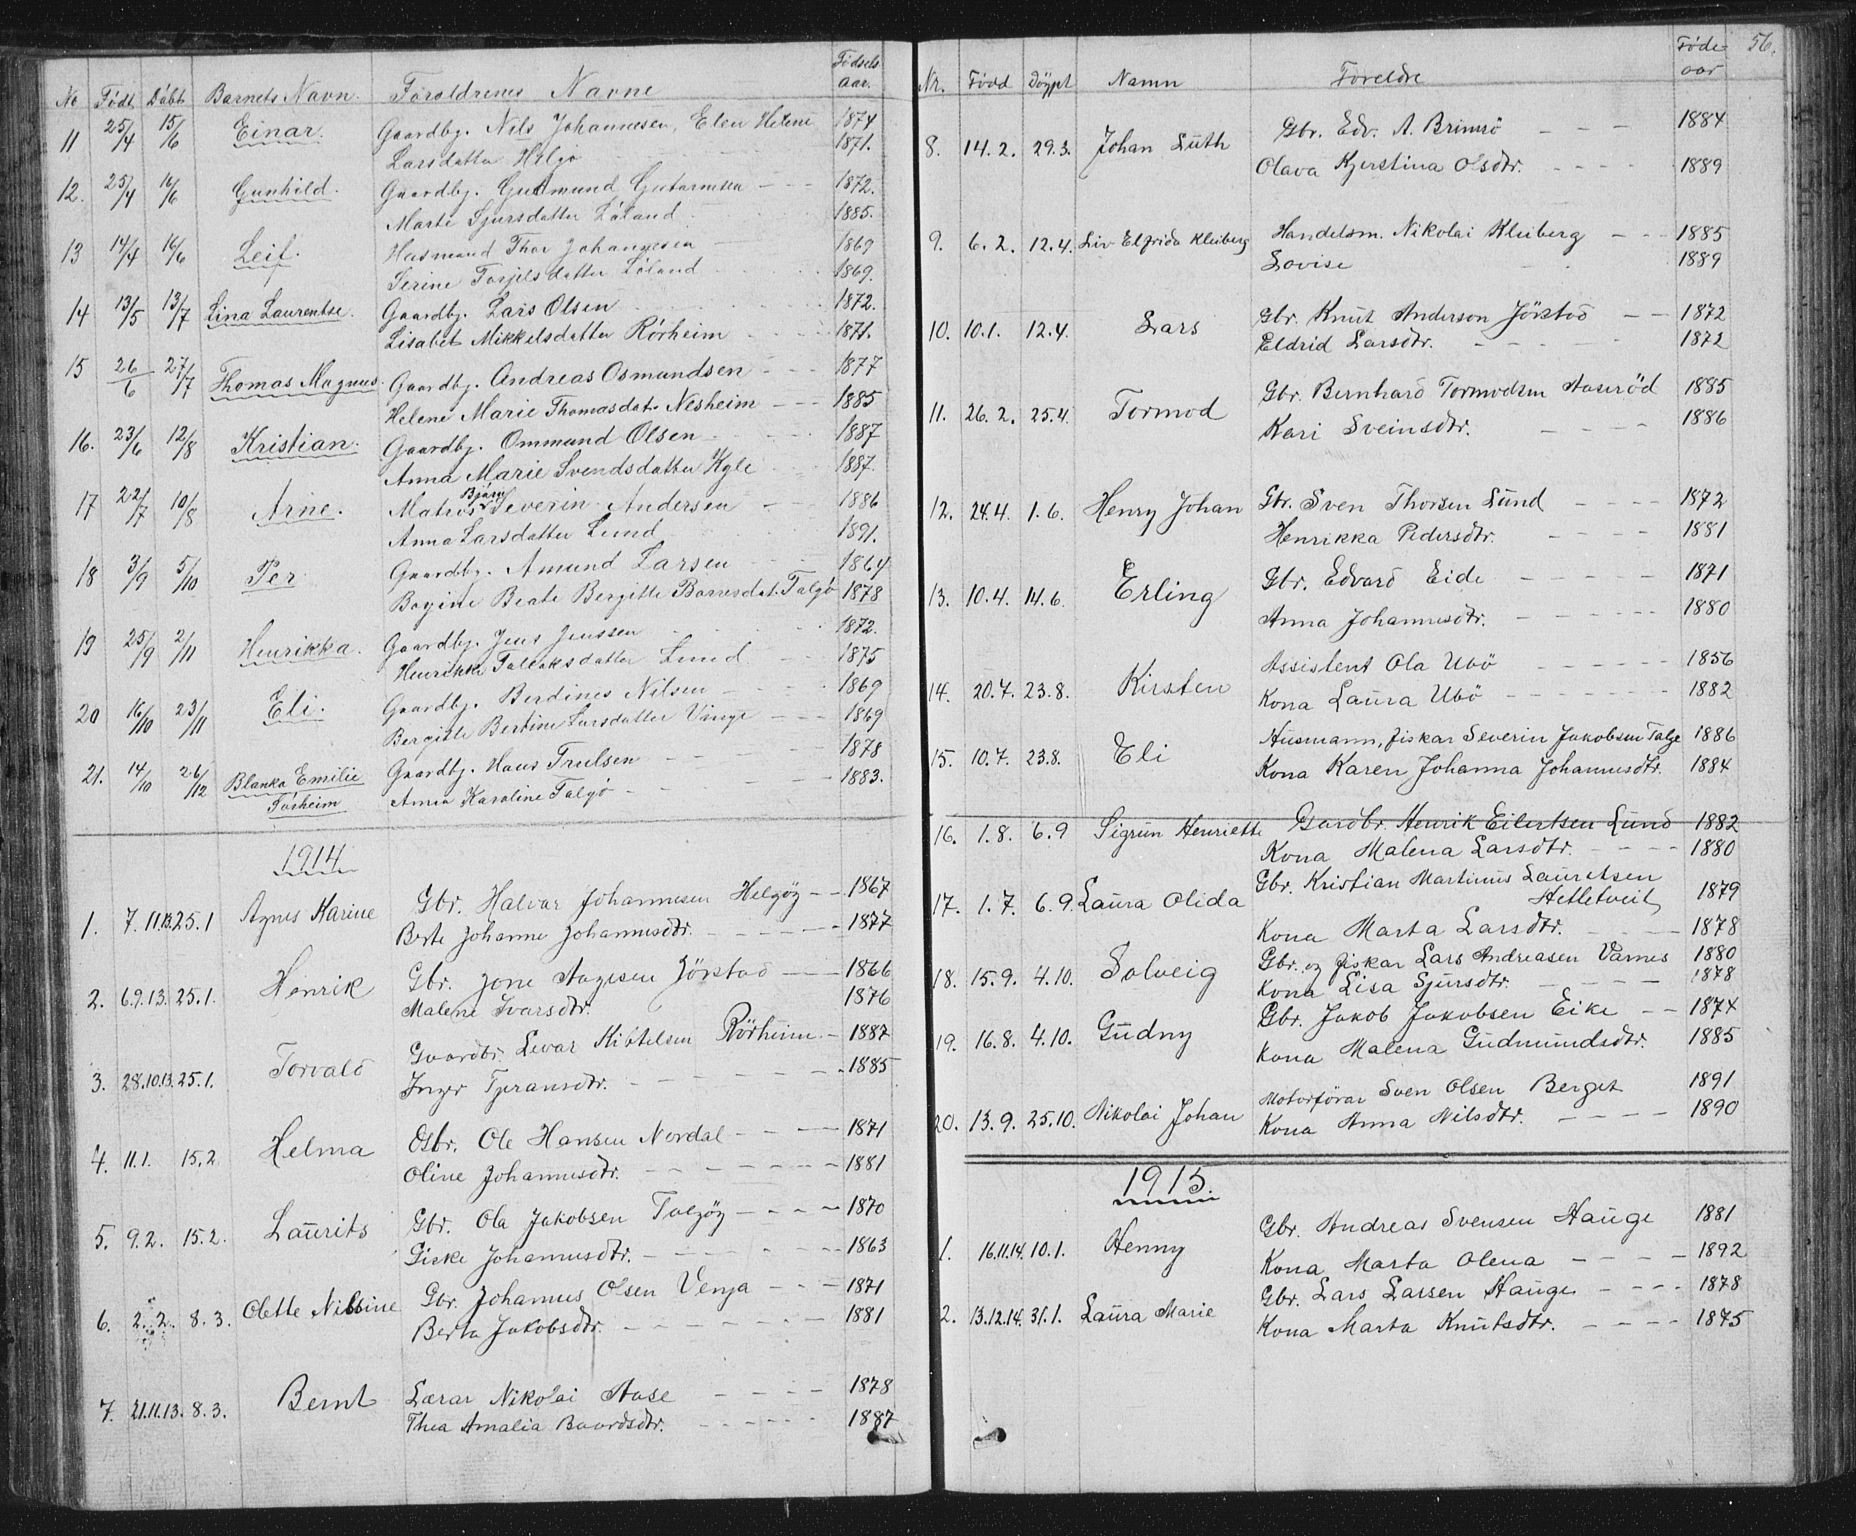 No Født Døbt Barnets Navn. Forældrenes Navne Fødsels aar.
11 25/4 15/6 Einar. Gaardbg. Nils Johannesen, Elen Helene 1874
Larsdatter Helgø 1871.
12. 25/4 16/6 Gunhild. Gaardbg. Gudmund Gutormsen 1872.
Marte Sjursdatter Løland 1885.
13 14/4 16/6 Leif. Husmand Thor Johannesen 1869
Serine Torjelsdatter Løland 1869.
14 13/5 13/7 Lina Laurentse. Gaardbg. Lars Olsen 1872.
Lisabet Mikkelsdatter Rørheim 1871.
15 26/6 27/7 Thomas Magnus. Gaardbg. Andreas Osmundsen 1877
Helene Marie Thomasdat. Nesheim 1885
16. 23/6 12/8 Kristian. Gaardbg. Ommund Olsen 1887
Anna Marie Svendsdatter Kyle 1887.
17 22/7 10/8 Arne. Matros Bjørn Severin Andersen 1886
Anna Larsdatter Lund 1891.
18 3/9 5/10 Per Gaardbg. Amund Larsen 1864
Beate Bergitte Talgø 1878
19 25/9 2/11 Henrikka. Gaardbg. Jens Jenssen 1872.
Henrikke Tollaksdatter Lund 1875
20 16/10 23/11 Eli. Gaardbg. Berdines Nilsen 1869
Bergitte Bertine Larsdatter Vinge 1869
21. 14/10 26/12 Blanka Emilie Gaardbg. Hans Trulsen 1878
Førheim Anna Karoline Talgø 1883.
1914
1. 7.11.13. 25.1 Agnes Karine Gbr. Halvar Johannesen Helgøy 1867
Berte Johanne Johannesdtr. 1877
2. 6.9.13. 25.1. Henrik Gbr. Jone Aagesen Jörstad 1866
Malene Ivarsdtr. 1876
3. 28.10.13. 25.1. Torvald Gaardbr. Levar Kittelsen Rörheim 1887
Inger Tjeransdtr. 1885
4. 11.1. 15.2 Helma Gbr. Ole Hansen Nordal 1871
Oline Johannesdtr. 1881
5. 9.2. 15.2. Laurits Gbr. Ola Jakobsen Talgøy 1870
Giske Johannesdtr. 1863
6. 2.2. 8.3. Olette Nilsine Gbr. Johannes Olsen Venja 1871
Berta Jakobsdtr. 1881
7. 21.11.13. 8.3. Bernt Lærar Nikolai Aase 1878
Thea Amalia Baardsdtr. 1887
56.
Nr. Född Döypt Namn Foreldre Föde aar
8. 14.2. 29.3. Johan Luth Gbr. Edv. A. Brimsö 1884
Olava Kjerstina Olsdtr. 1889
9. 6.2. 12.4. Liv Elfrida Kleiberg Handelsm. Nikolai Kleiberg 1885
Lovise 1889
10. 10.1. 12.4. Lars Gbr. Knut Anderson Jörstad 1872
Eldrid Larsdtr. 1872
11. 26.2. 25.4. Tormod Gbr. Bernhard Tormodsen Aaseröd 1885
Kari Sveinsdtr. 1886
12. 24.4. 1.6. Henry Johan Gbr. Sven Thorsen Lund 1872
Henrikka Pedersdtr. 1881
13. 10.4. 14.6. Erling Gbr. Edvard Eide 1871
Anna Johannesdtr. 1880
14. 20.7. 23.8. Kirsten Assistent Ola Ubö 1856
Kona Laura Ubö 1882
15. 10.7. 23.8. Eli Husmann, fiskar Severin Jakobsen Talge 1886
Kona Karen Johanna Johannesdtr. 1884
16. 1.8. 6.9 Sigrun Henriette Gardbr. Henrik Eilertsen Lund 1882
Kona Malena Larsdtr. 1880
17. 1.7. 6.9. Laura Olida Gbr. Kristian Martinus Lauretsen
Hetletveit 1879
Kona Marta Larsdtr. 1878
18. 15.9. 4.10. Solveig Gbr. og fiskar Lars Andreasen Varnes 1880
Kona Lisa Sjursdtr. 1878
19. 16.8. 4.10. Gudny Gbr. Jakob Jakobsen Eike 1874
Kona Malena Gudmundsdtr. 1885
20. 13.9. 25.10. Nikolai Johan Motorförar Sven Olsen Berget 1891
Kona Anna Nilsdtr. 1890
1915.
1. 16.11.14. 10.1. Henny Gbr. Andreas Svensen Hauge 1881
Kona Marta Olena 1892
2. 13.12.14. 31.1. Laura Marie Gbr. Lars Larsen Hauge 1878
Kona Marta Knutsdtr. 1875